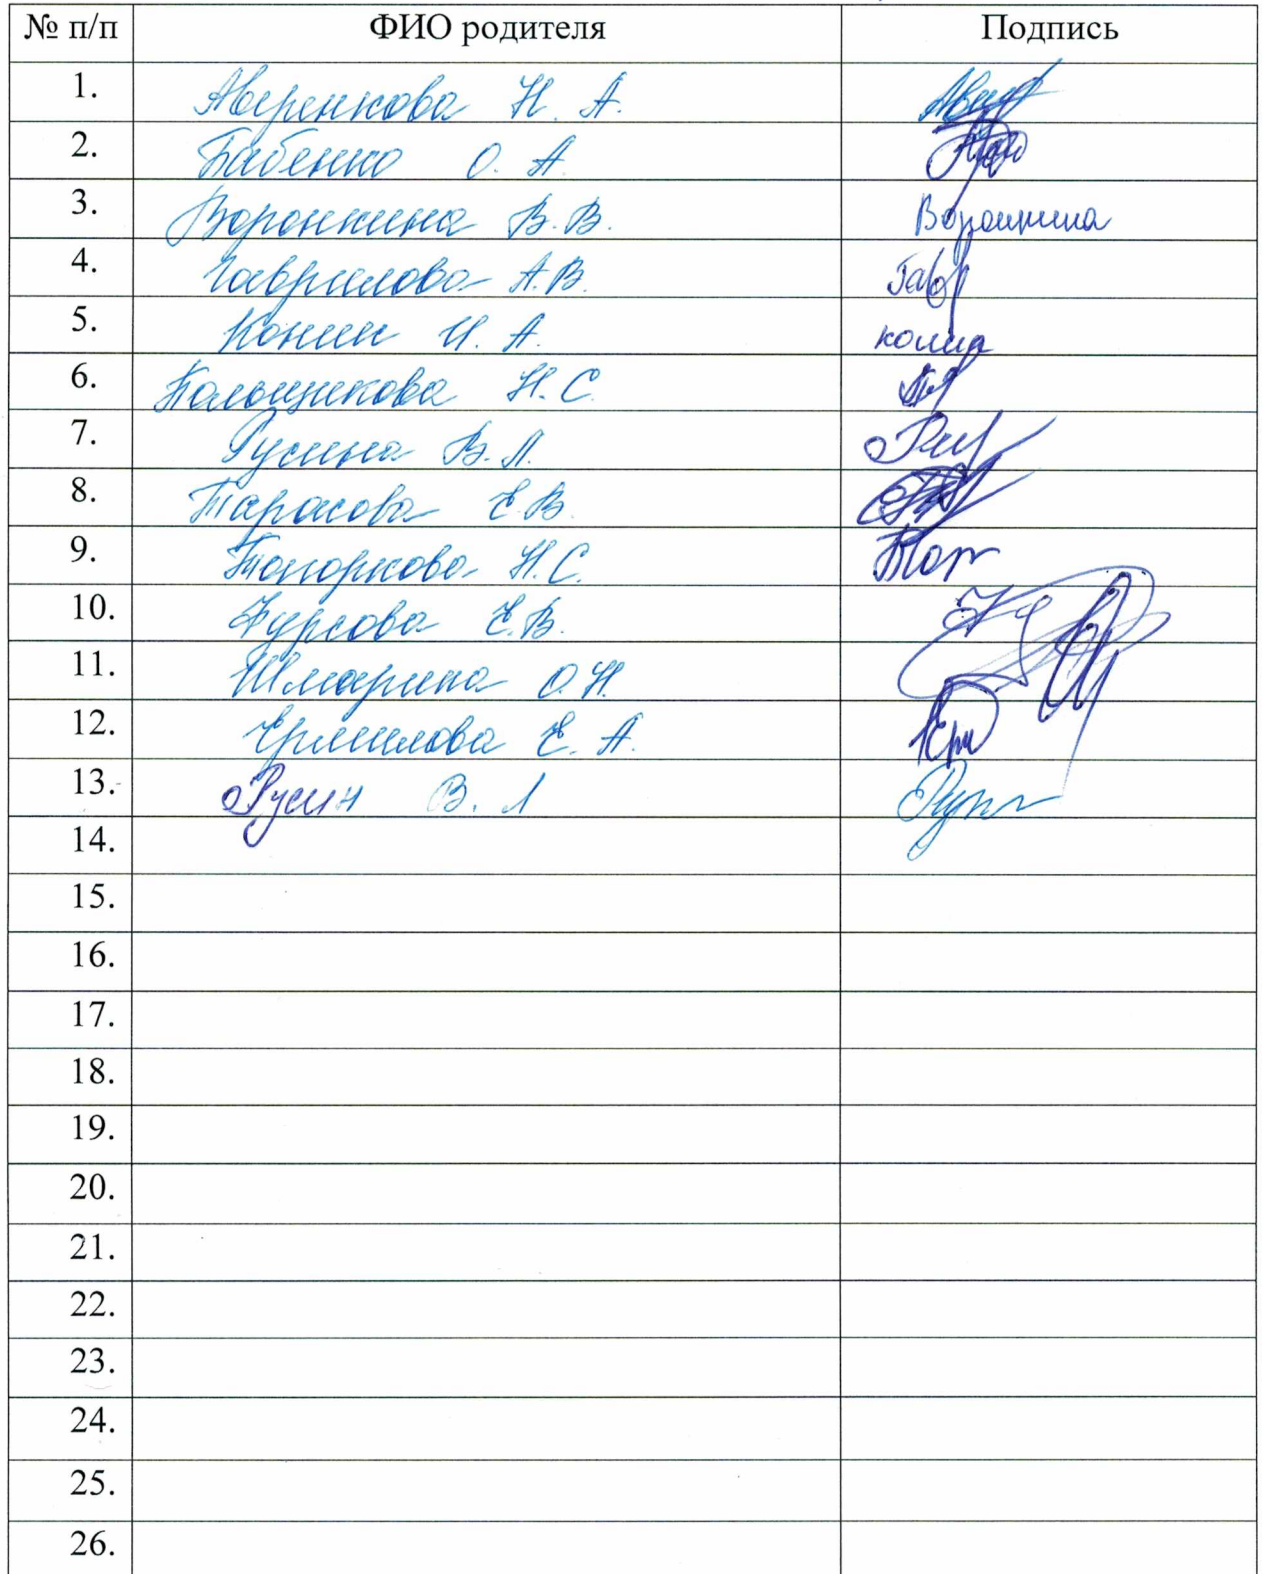 № п/п ФИО родителя Подпись
1. Аверенкова Н. А.
2. Бабенко О. А.
3. Воронкина В. В. Воронкина
4. Гаврилова А. В. Гавр
5. Конин И. А.
6. Пальщикова Н. С.
7. Русина В. Л.
8. Тарасова Е. В.
9. Топоркова Н. С. Топ
10. Фурсова Е. В.
11. Шмарина О. Н.
12. Ермилова Е. А.
13. Русин В. Л
14.
15.
16.
17.
18.
19.
20.
21.
22.
23.
24.
25.
26.